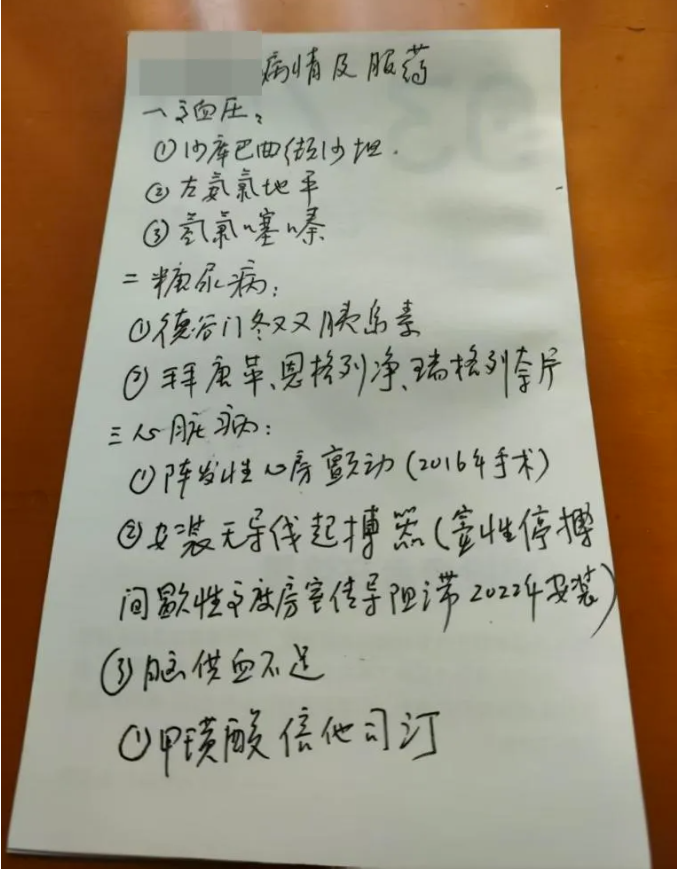 病情及服药
一高血压：
①沙库巴曲缬沙坦.
②左氨氯地平
③氢氯噻嗪
二糖尿病：
①德谷门冬双胰岛素
②拜唐苹、恩格列净、瑞格列奈片
三心脏病：
①阵发性心房颤动(2016年手术)
②安装无导线起搏器(窦性停搏
间歇性高度房室传导阻滞2022年安装)
③脑供血不足
①甲磺酸倍他司汀